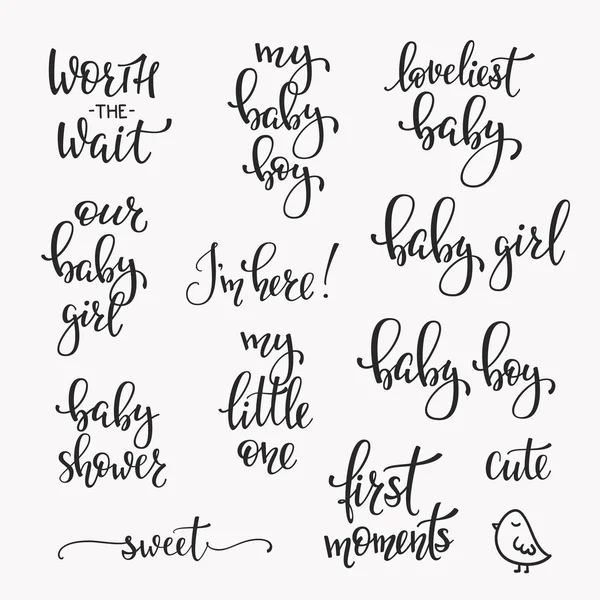 WORTH
-THE-
Wait
my
baby
boy
loveliest
baby
our
baby
girl
I'm here!
baby girl
my
little
one
baby boy
baby
shower
first
moments
cute
sweet